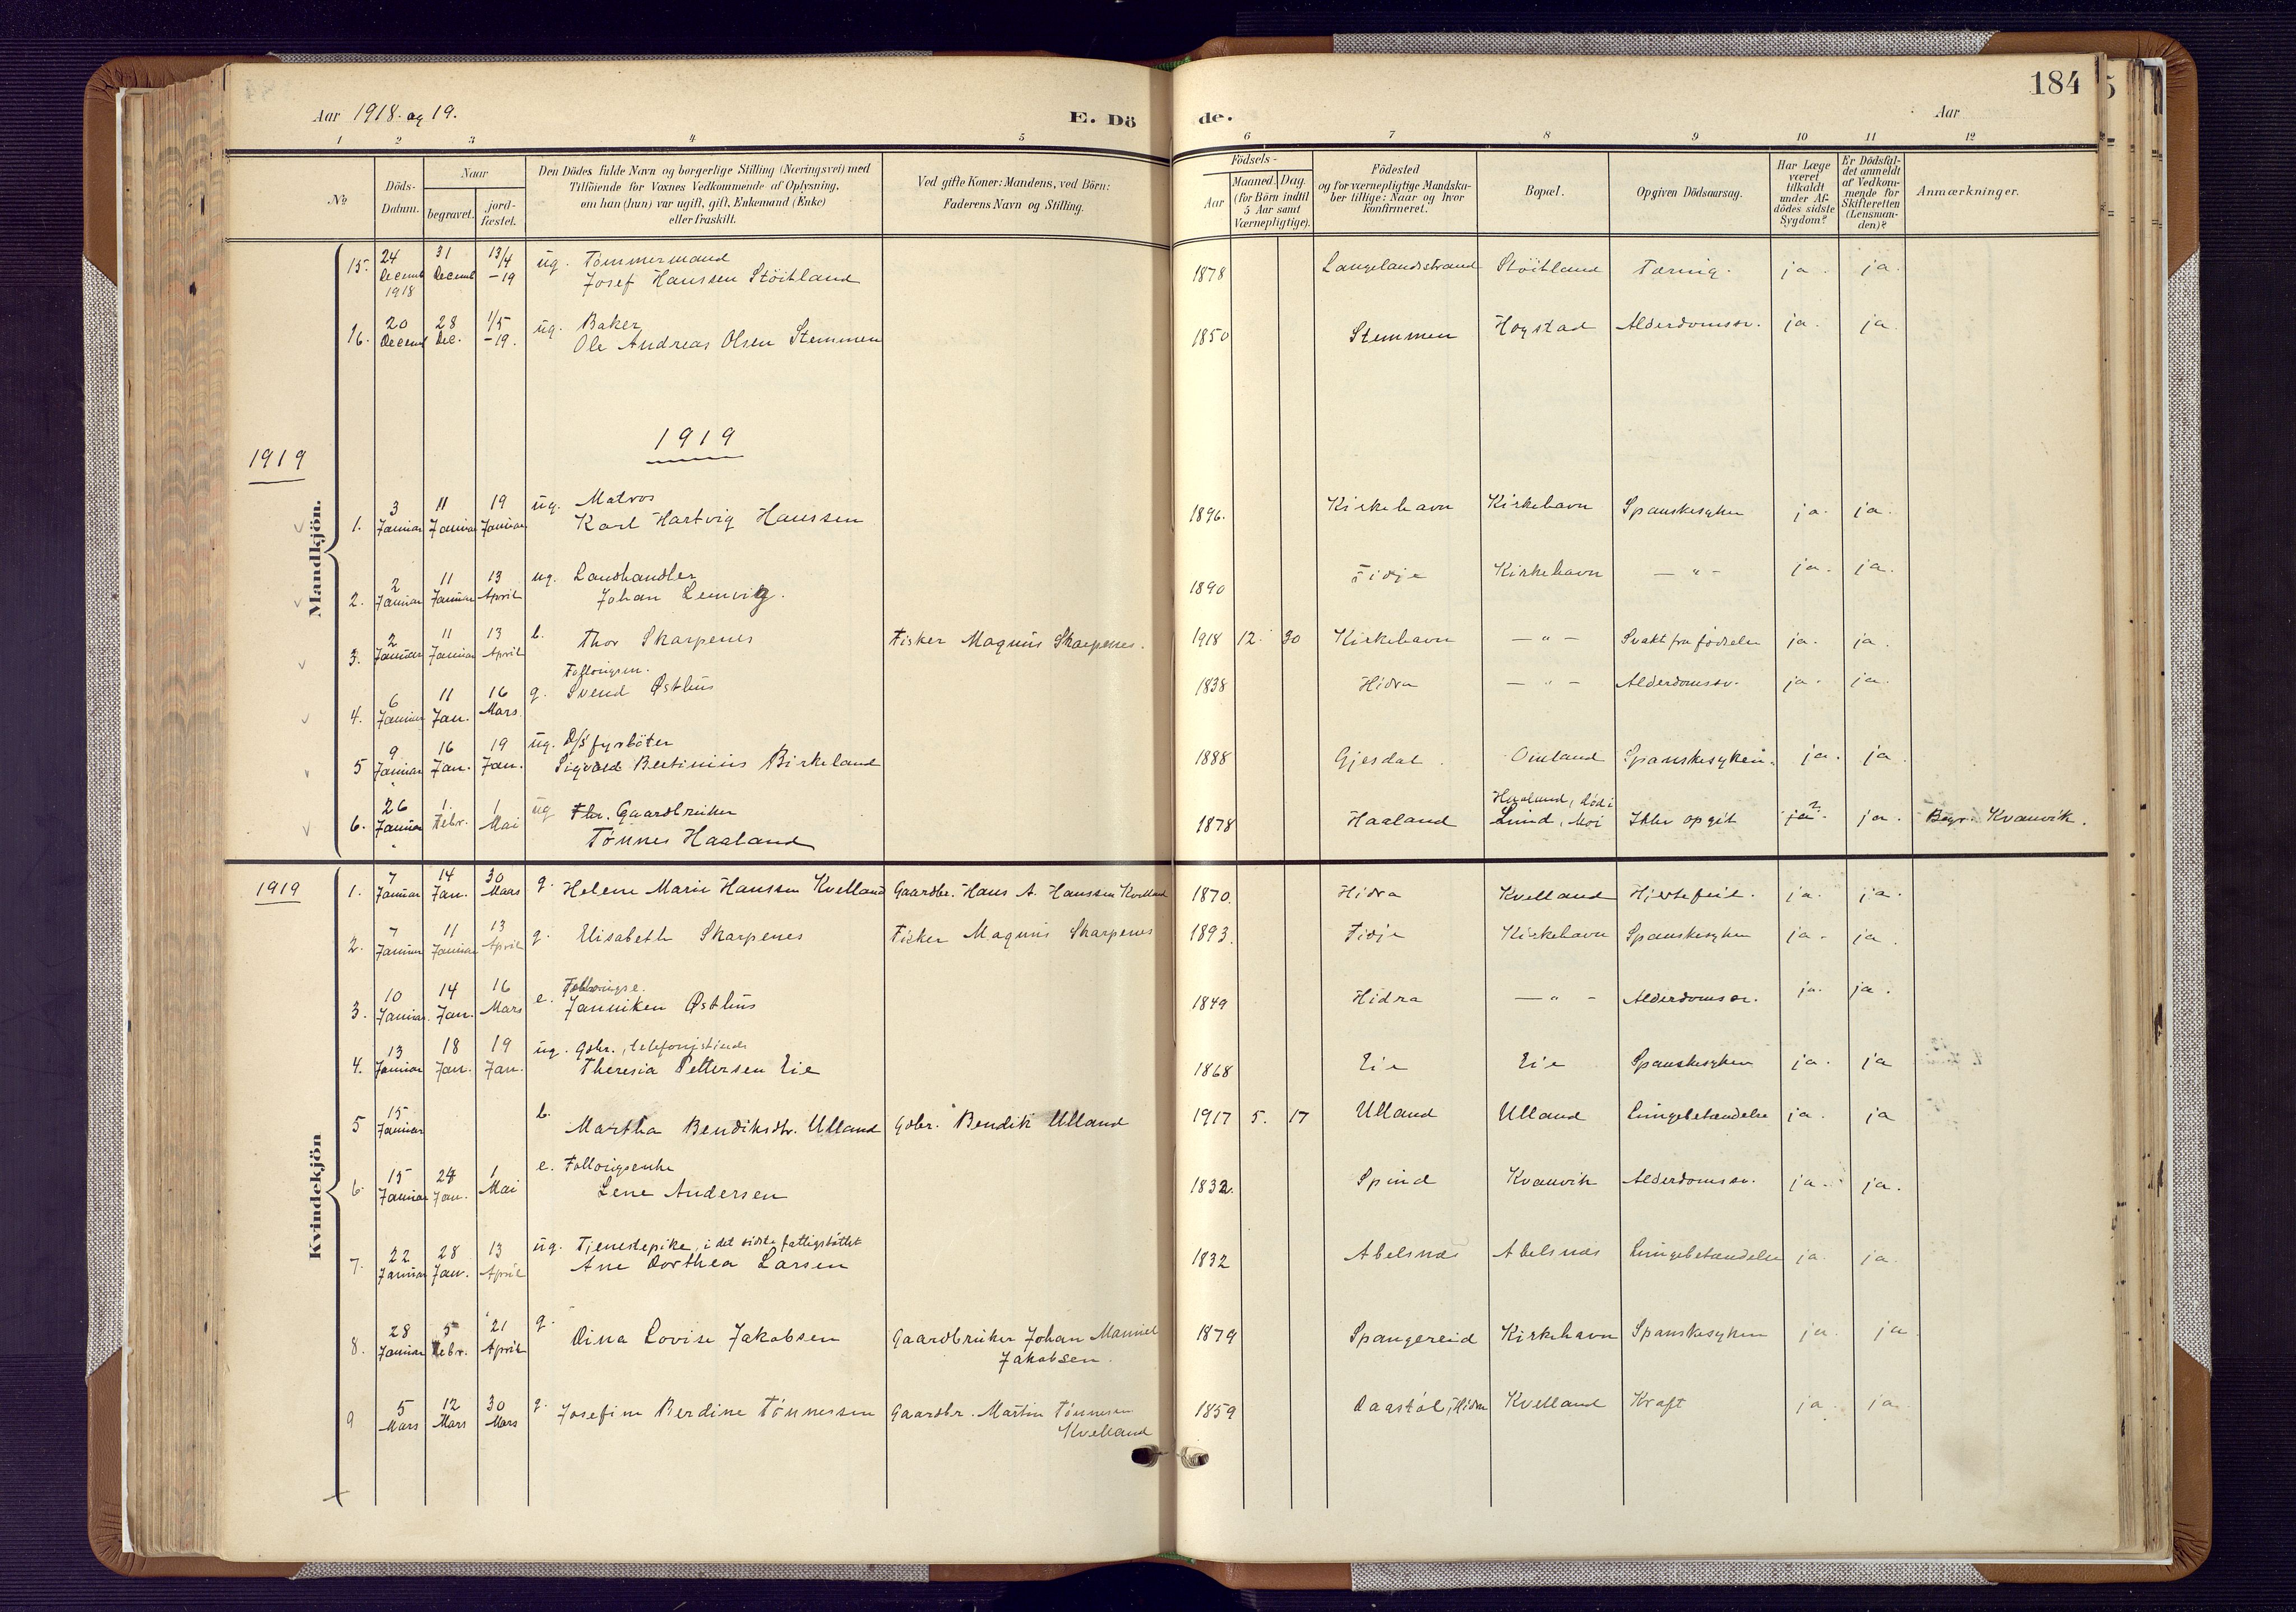 184
Aar 1918. og 19.
E. Dö
de.
Aar
1 2 3 4 5 6 7 8 9 10 11 12
No
Döds-
Datum.
Naar
begravet.
jord-
fæstet.
Den Dödes fulde Navn og borgerlige Stilling (Næringsvei) med
Tilföiende for Voxnes Vedkommende af Oplysning,
om han (hun) var ugift, gift, Enkemand (Enke)
eller fraskilt.
Ved gifte Koner: Mandens, ved Börn:
Faderens Navn og Stilling.
Födsels-
Aar
Maaned. Dag.
(for Börn indtil
5 Aar samt
Værnepligtige).
Födested
og for værnepligtige Mandska-
ber tillige: Naar og hvor
konfirmeret.
Bopæl.
Opgiven Dödsaarsag.
Har Læge
været
tilkaldt
under Af-
dödes sidste
Sygdom?
Er Dödsfal-
det anmeldt
af Vedkom-
mende for
Skifteretten
(Lensman-
den)?
Anmærkninger.
15. 24 Decemb 1918 31 Decemb 13/4 -19 ug. Tømmermand
Josef Hanssen Stöitland 1878 Langelandsstrand Stöitland Tæring. ja. ja.
16. 20 Decemb 28 Dec. 1/5 -19. ug. Baker
Ole Andreas Olsen Stemmen 1850 Stemmen Hogstad Alderdomssv. ja. ja
1919
1919
Mandkjön.
1. 3 Januar 11 Januar 19 Januar ug. Matros
Karl Hartvig Hanssen 1896. Kirkehavn Kirkehavn Spanskesyken ja. ja.
2. 2 Januar 11 Januar 13 April ug. Landhandler
Johan Lemvig. 1890 Fidje Kirkehavn — " — ja. ja.
3. 2 Januar 11 Januar 13 April b. Thor Skarpenes Fisker Magnus Skarpenes. 1918 12. 30 Kirkehavn — " — Svakt fra fødselen ja. ja.
4. 6 Januar 11 Jan. 16 Mars. g. Svend Østhus 1838 Hidra — " — Alderdomssv. ja. ja.
5 9 Januar 16 Jan. 19 Jan. ug. D/S fyrbøter
Sigvald Bertinius Birkeland 1888 Gjesdal Omland Spanskesyken. ja. ja.
6. 26 Januar 1. Febr. 1 Mai ug Fhr. Gaardbruker
Tønnes Haaland 1878 Haaland Haaland, død i
Lund, Moi Ikke opgit ja? ja. Begr. Kvanvik.
1919
Kvindekjön
1. 7 Januar 14 Jan. 30 Mars g. Helene Marie Hanssen Kvelland Gaardbr. Hans A. Hanssen Kvelland 1870. Hidra Kvelland Hjertefeil. ja. ja.
2. 7 Januar 11 Januar 13 April g. Elisabeth Skarpenes Fisker Magnus Skarpenes 1893. Fidje Kirkehavn Spanskesyken ja. ja.
3. 10 Januar. 14 Jan. 16 Mars e.
Janniken Østhus 1849 Hidra — " — Alderdomssv. ja. ja.
4. 13 Januar 18 Jan. 19 Jan. ug. Gdbr., telefonistinde
Theresia Pettersen Eie 1868 Eie Eie Spanskesyken ja. ja
5 15 Januar b. Martha Bendiksdtr. Ulland Gdbr. Bendik Ulland 1917 5. 17 Ulland Ulland Lungebetændelse ja. ja
6 15 Januar 24 Jan. 1 Mai e. Føllorigsenke
Lene Andersen 1832. Spind Kvanvik Alderdomssv. ja. ja.
7. 22 Januar 28 Jan. 13 April ug. Tjenestepike, i det sidste fattigstøttet
Ane Dorthea Larsen 1832 Abelsnæs Abelsnæs Lungebetændelse ja. ja.
8. 28 Januar 5 Febr. 21 April g. Dina Lovise Jakobsen Gaardbruker Johan Manniel
Jakobsen. 1879 Spangereid Kirkehavn Spanskesyken ja. ja
9 5 Mars 12 Mars 30 Mars g. Josefine Berdine Tønnessen Gaardbr. Martin Tønnesen
Kvelland 1859 Daastøl, Hidra Kvelland Kræft ja. ja.